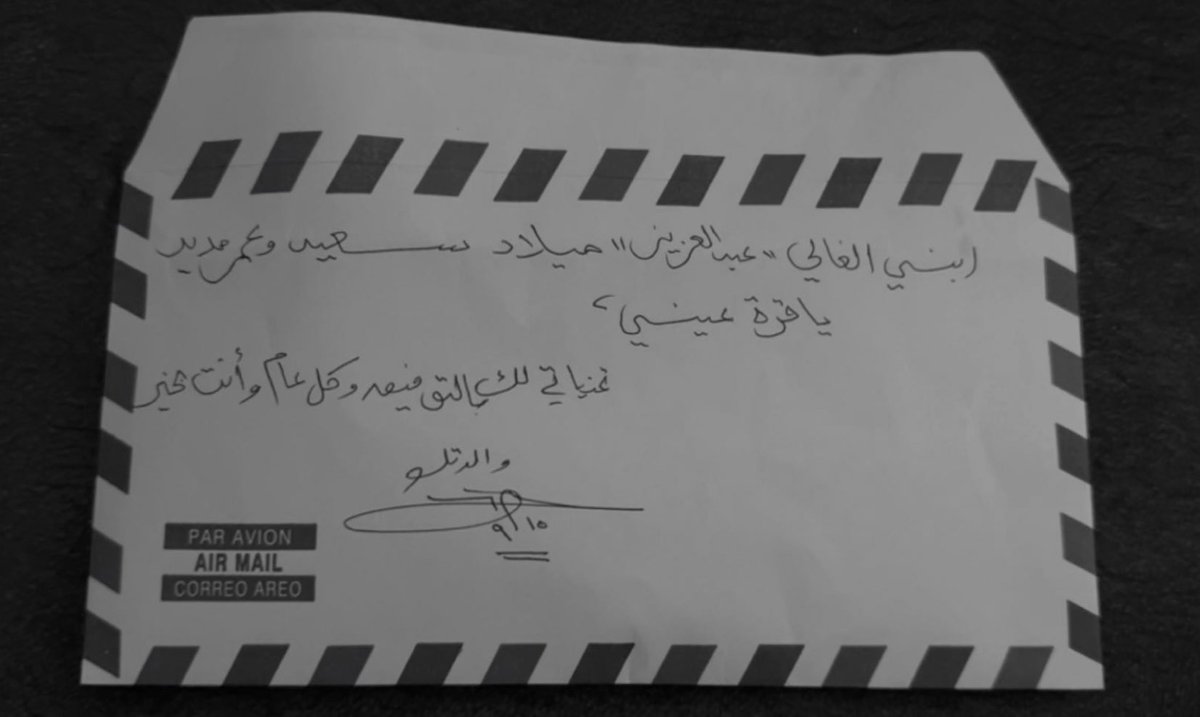 ابني الغالي "عبدالعزيز" ميلاد سعيد وعمر مديد
يا قرة عيني،
تمنياتي لك بالتوفيق وكل عام وأنت بخير
والدتك
٩/١٥
PAR AVION
AIR MAIL
CORREO AREO